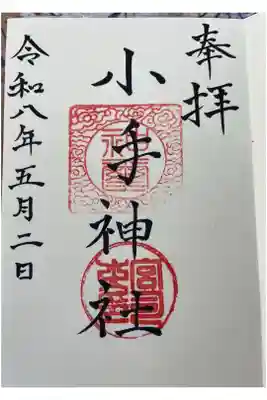 奉拝
小手神社
令和八年五月二日